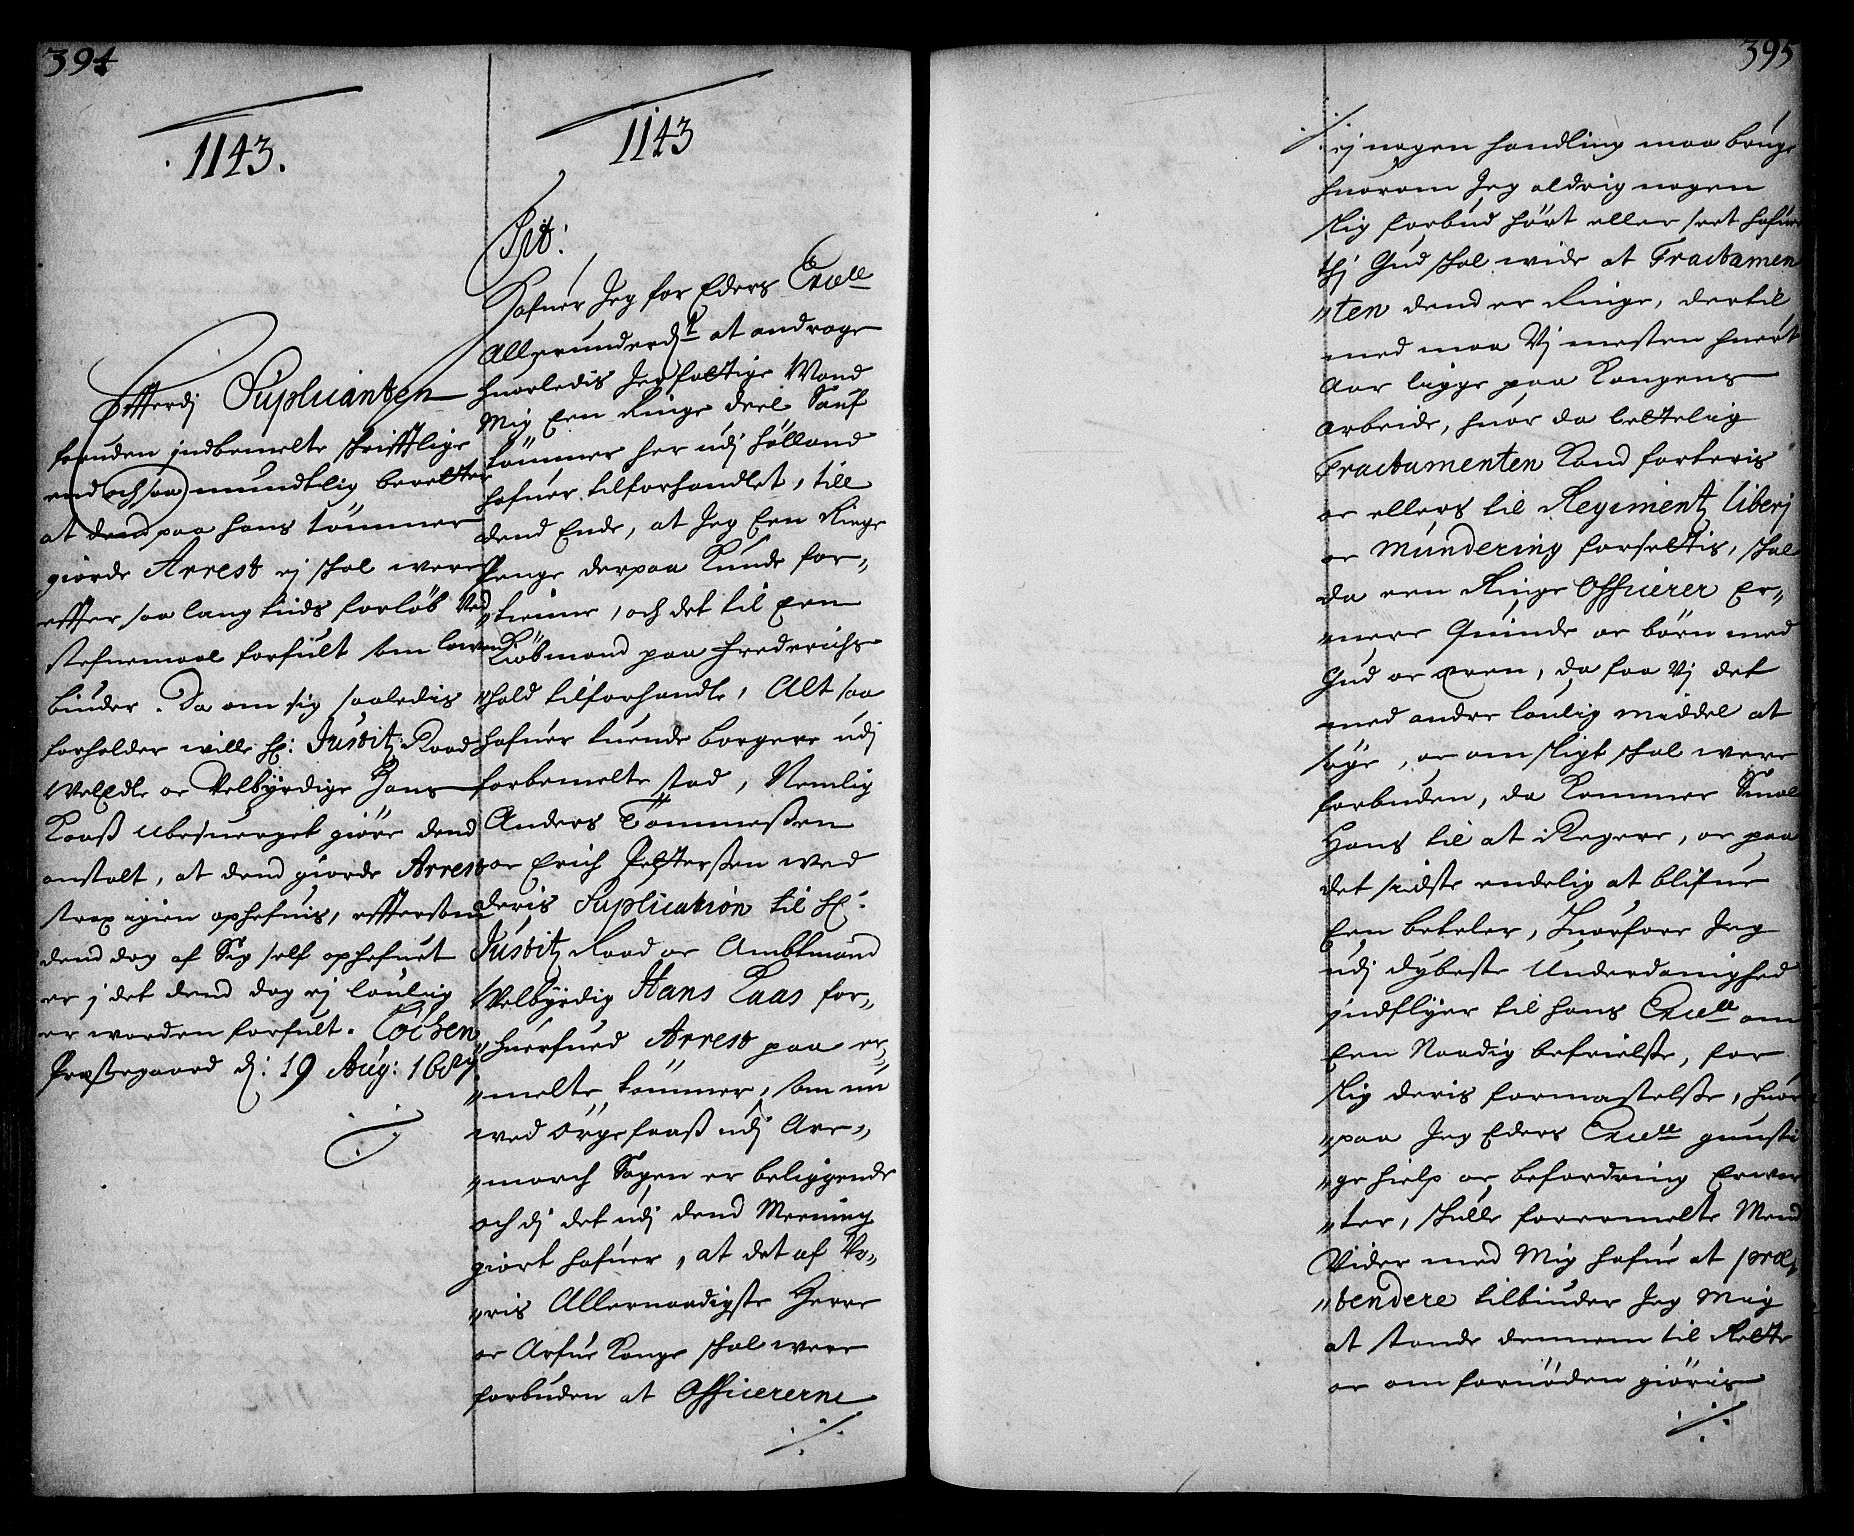 394
1143.
Effterdj Supluianten
foruden jndbemelte skrifftlige
end och saa mundtlig beretter
at dend paa hans tømmer
giorde Arrest ej skal were
effter saa lang tiids forløb Ved
stefnemaal forfult som lowen
binder. Da om sig saaledis
forholder wille H: Justitz Raad
WelEdle oc Velbyrdige Hans
Kaaß Ubesuerget giøre dend
anstalt, at dend giorde Arrest
strax igien ophefuis, efftersom
dend dog af Sig self ophefuet
er j det dend dog ej loulig
er worden forfult.
Præstegaard d: 19 Aug: 1689
1143
P:t:
Hafuer Jeg for Eders Excell
Allerunderd:t at andrage
huorledis Jeg fattige Mand
Mig Een Ringe deel Sauf
tømmer her udj Hølland
hafuer tilforhandlet, till
dend Ende, at Jeg Een Ringe
Penge derpaa Kunde for,,
,,tienne, och det til een
Kiøbmand paa Frederichs
,,hald tilforhandle, Alt saa
hafuer tuende borgere udj
forbemelte stad, Nemlig
Anders Tommeßen
oc Erich Petterßen med
deris Suplication til H:
Justitz Raad oc Ambtmand
Velbyrdig Hans Kaas for,,
,,huerfued Arrest paa er,,
,,melte tømmer, som nu
wed Ørgefaaß udj Are,,
,,march Sogen er beliggende
och dj det udj dend Meening
giort hafuer, at det af Vo,,
,,ris Allernaadigste Herre
oc Arfue Konge skal were
forbuden at Officererne
395
ej nogen handling maa bruge
huorom Jeg aldrig nogen
slig forbud hørt eller seet hafuer
thj Gud skal wide at Tractamen
,,ten dend er Ringe, dertil
med maa Vj mesten huert
Aar ligge paa Kongens
Arbeide, huor da lettelig
Tractamenten Kand forteris
oc ellers til Regimentz liberj
oc Mundering forsettis, skal
da een Ringe Officerer Er,,
,,nere Quinde oc børn med
Gud oc æren, da faa Vj det
med andre loulig middel at
søge, oc om sligt skal were
forbuden, da Kommer Smal
Hans til at Regere, oc paa
det sidste endelig at blifue
Een beteler, Huorfore Jeg
udj dybeste Underdanighed
jndflyer til hans Excell om
Een Naadig befrielße, for
slig deris formastelße, huor
,,paa Jeg Eders Excell gunsti
,,ge hielp oc befordring Erwar
,,ter, skulle forermelte Mend
Vider med Mig hafue at præ,,
,,tendere tilbinder Jeg Mig
at stande dennem til Rette
oc om fornøden giøris